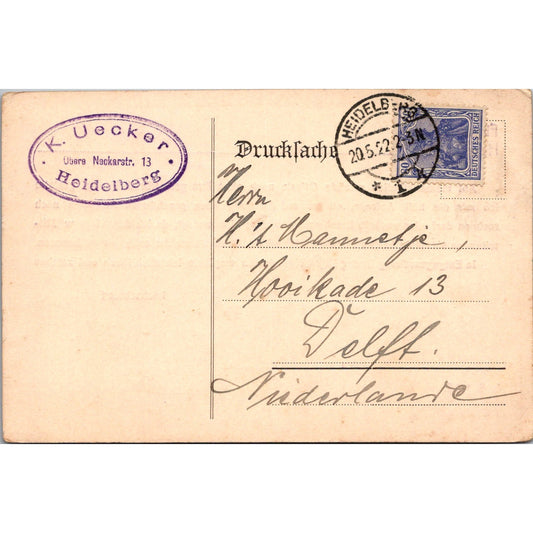 K. Uecker
Obere Neckarstr. 13
Heidelberg
Drucksache
HEIDELBERG
20.5.22.2-3N
* 1 *
DEUTSCHES REICH
Herrn
H. 't Mannetje,
Hooikade 13
Delft.
Niederlande